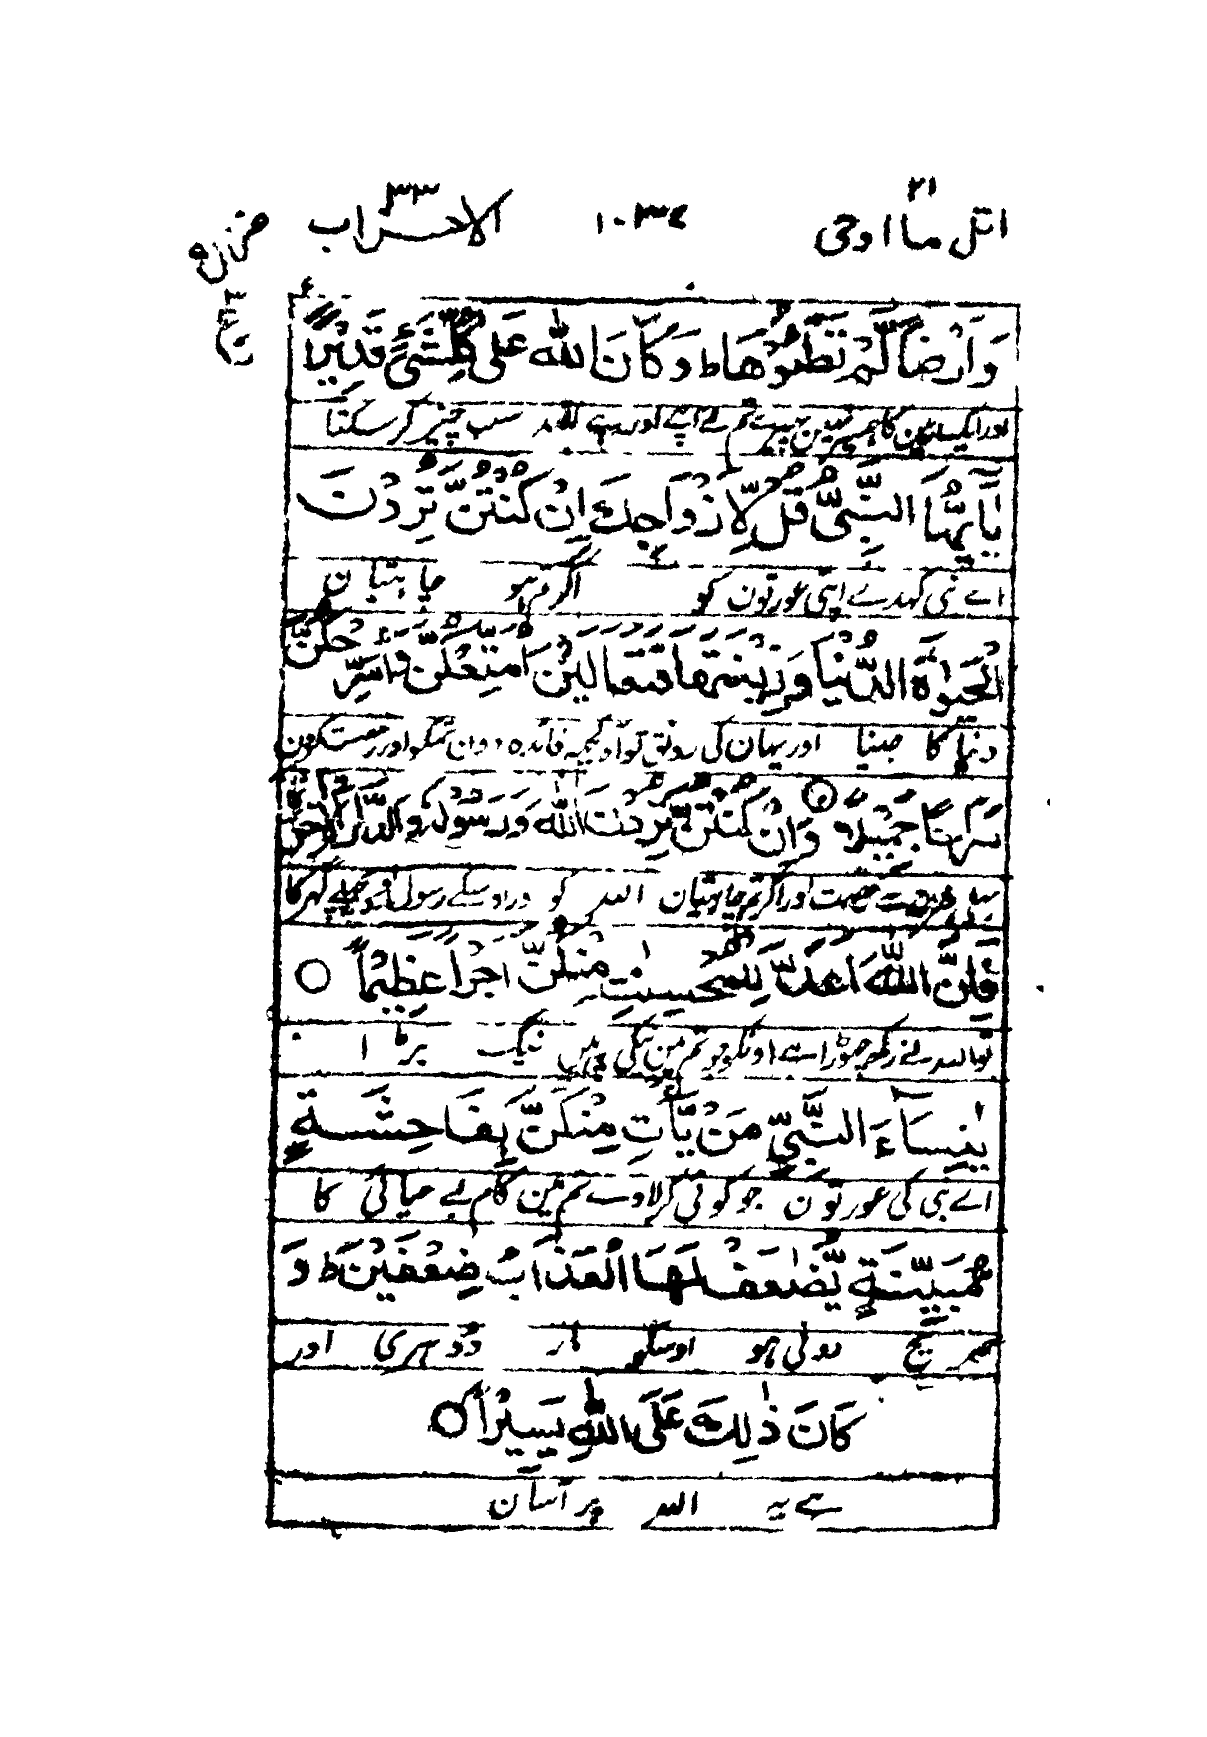 اتل ما اوحی ۲۱ ۱۰۳۴ الاحزاب ۳۳
وَاَرْضًا لَّمْ تَطَـُٔوْهَا ط وَكَانَ اللّٰهُ عَلٰى كُلِّ شَیْءٍ قَدِیْرًا
اور ایک زمین کا جسپر نہین پھیرے تم نے اپنے اور ہے اللہ سب چیز کر سکتا
یٰۤاَیُّهَا النَّبِیُّ قُلْ لِّاَزْوَاجِكَ اِنْ كُنْتُنَّ تُرِدْنَ
اے نبی کہدے اپنی عورتون کو اگر تم ہو چاہتیان
الْحَیٰوةَ الدُّنْیَا وَزِیْنَتَهَا فَتَعَالَیْنَ اُمَتِّعْكُنَّ وَاُسَرِّحْكُنَّ
دنیا کا جینا اور یہان کی رونق تو آؤ کچھ فائدہ دون تمکو اور رخصت کرون
سَرَاحًا جَمِیْلًا ○ وَاِنْ كُنْتُنَّ تُرِدْنَ اللّٰهَ وَرَسُوْلَهٗ وَالدَّارَ الْاٰخِرَةَ
بھلی طرح سے رخصت اور اگر تم چاہتیان اللہ کو اور اوسکے رسول کو اور پچھلے گھر کا
فَاِنَّ اللّٰهَ اَعَدَّ لِلْمُحْسِنٰتِ مِنْكُنَّ اَجْرًا عَظِیْمًا ○
تو اللہ نے رکھ چھوڑا ہے اونکو جو تم مین نیکی پر ہین نیگ بڑا
یٰنِسَآءَ النَّبِیِّ مَنْ یَّاْتِ مِنْكُنَّ بِفَاحِشَةٍ
اے نبی کی عورتون جو کوئی کر لاوے تم مین کام بے حیائی کا
مُّبَیِّنَةٍ یُّضٰعَفْ لَهَا الْعَذَابُ ضِعْفَیْنِ ط وَ
صریح دونی ہو اوسکو مار دوہری اور
كَانَ ذٰلِكَ عَلَى اللّٰهِ یَسِیْرًا ○
ہے یہ اللہ پر آسان